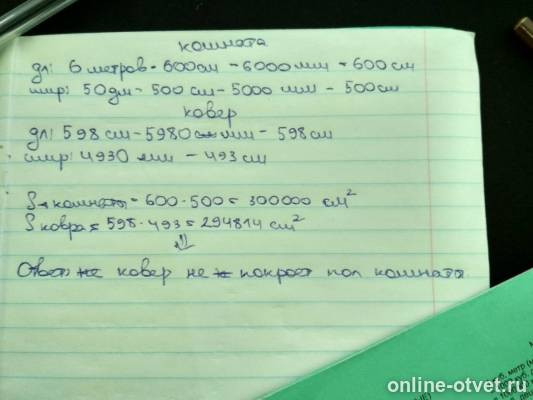 комната
дл: 6 метров = 600см - 6000мм = 600см
шир: 50дм - 500 см - 5000 мм - 500см
ковер
дл: 598 см - 5980 мм - 598см
шир: 4930 мм - 493 см
S комнаты = 600 · 500 = 300000 см²
S ковра = 598 · 493 = 294814 см²
Ответ: ковер не покроет пол комната.
online-otvet.ru